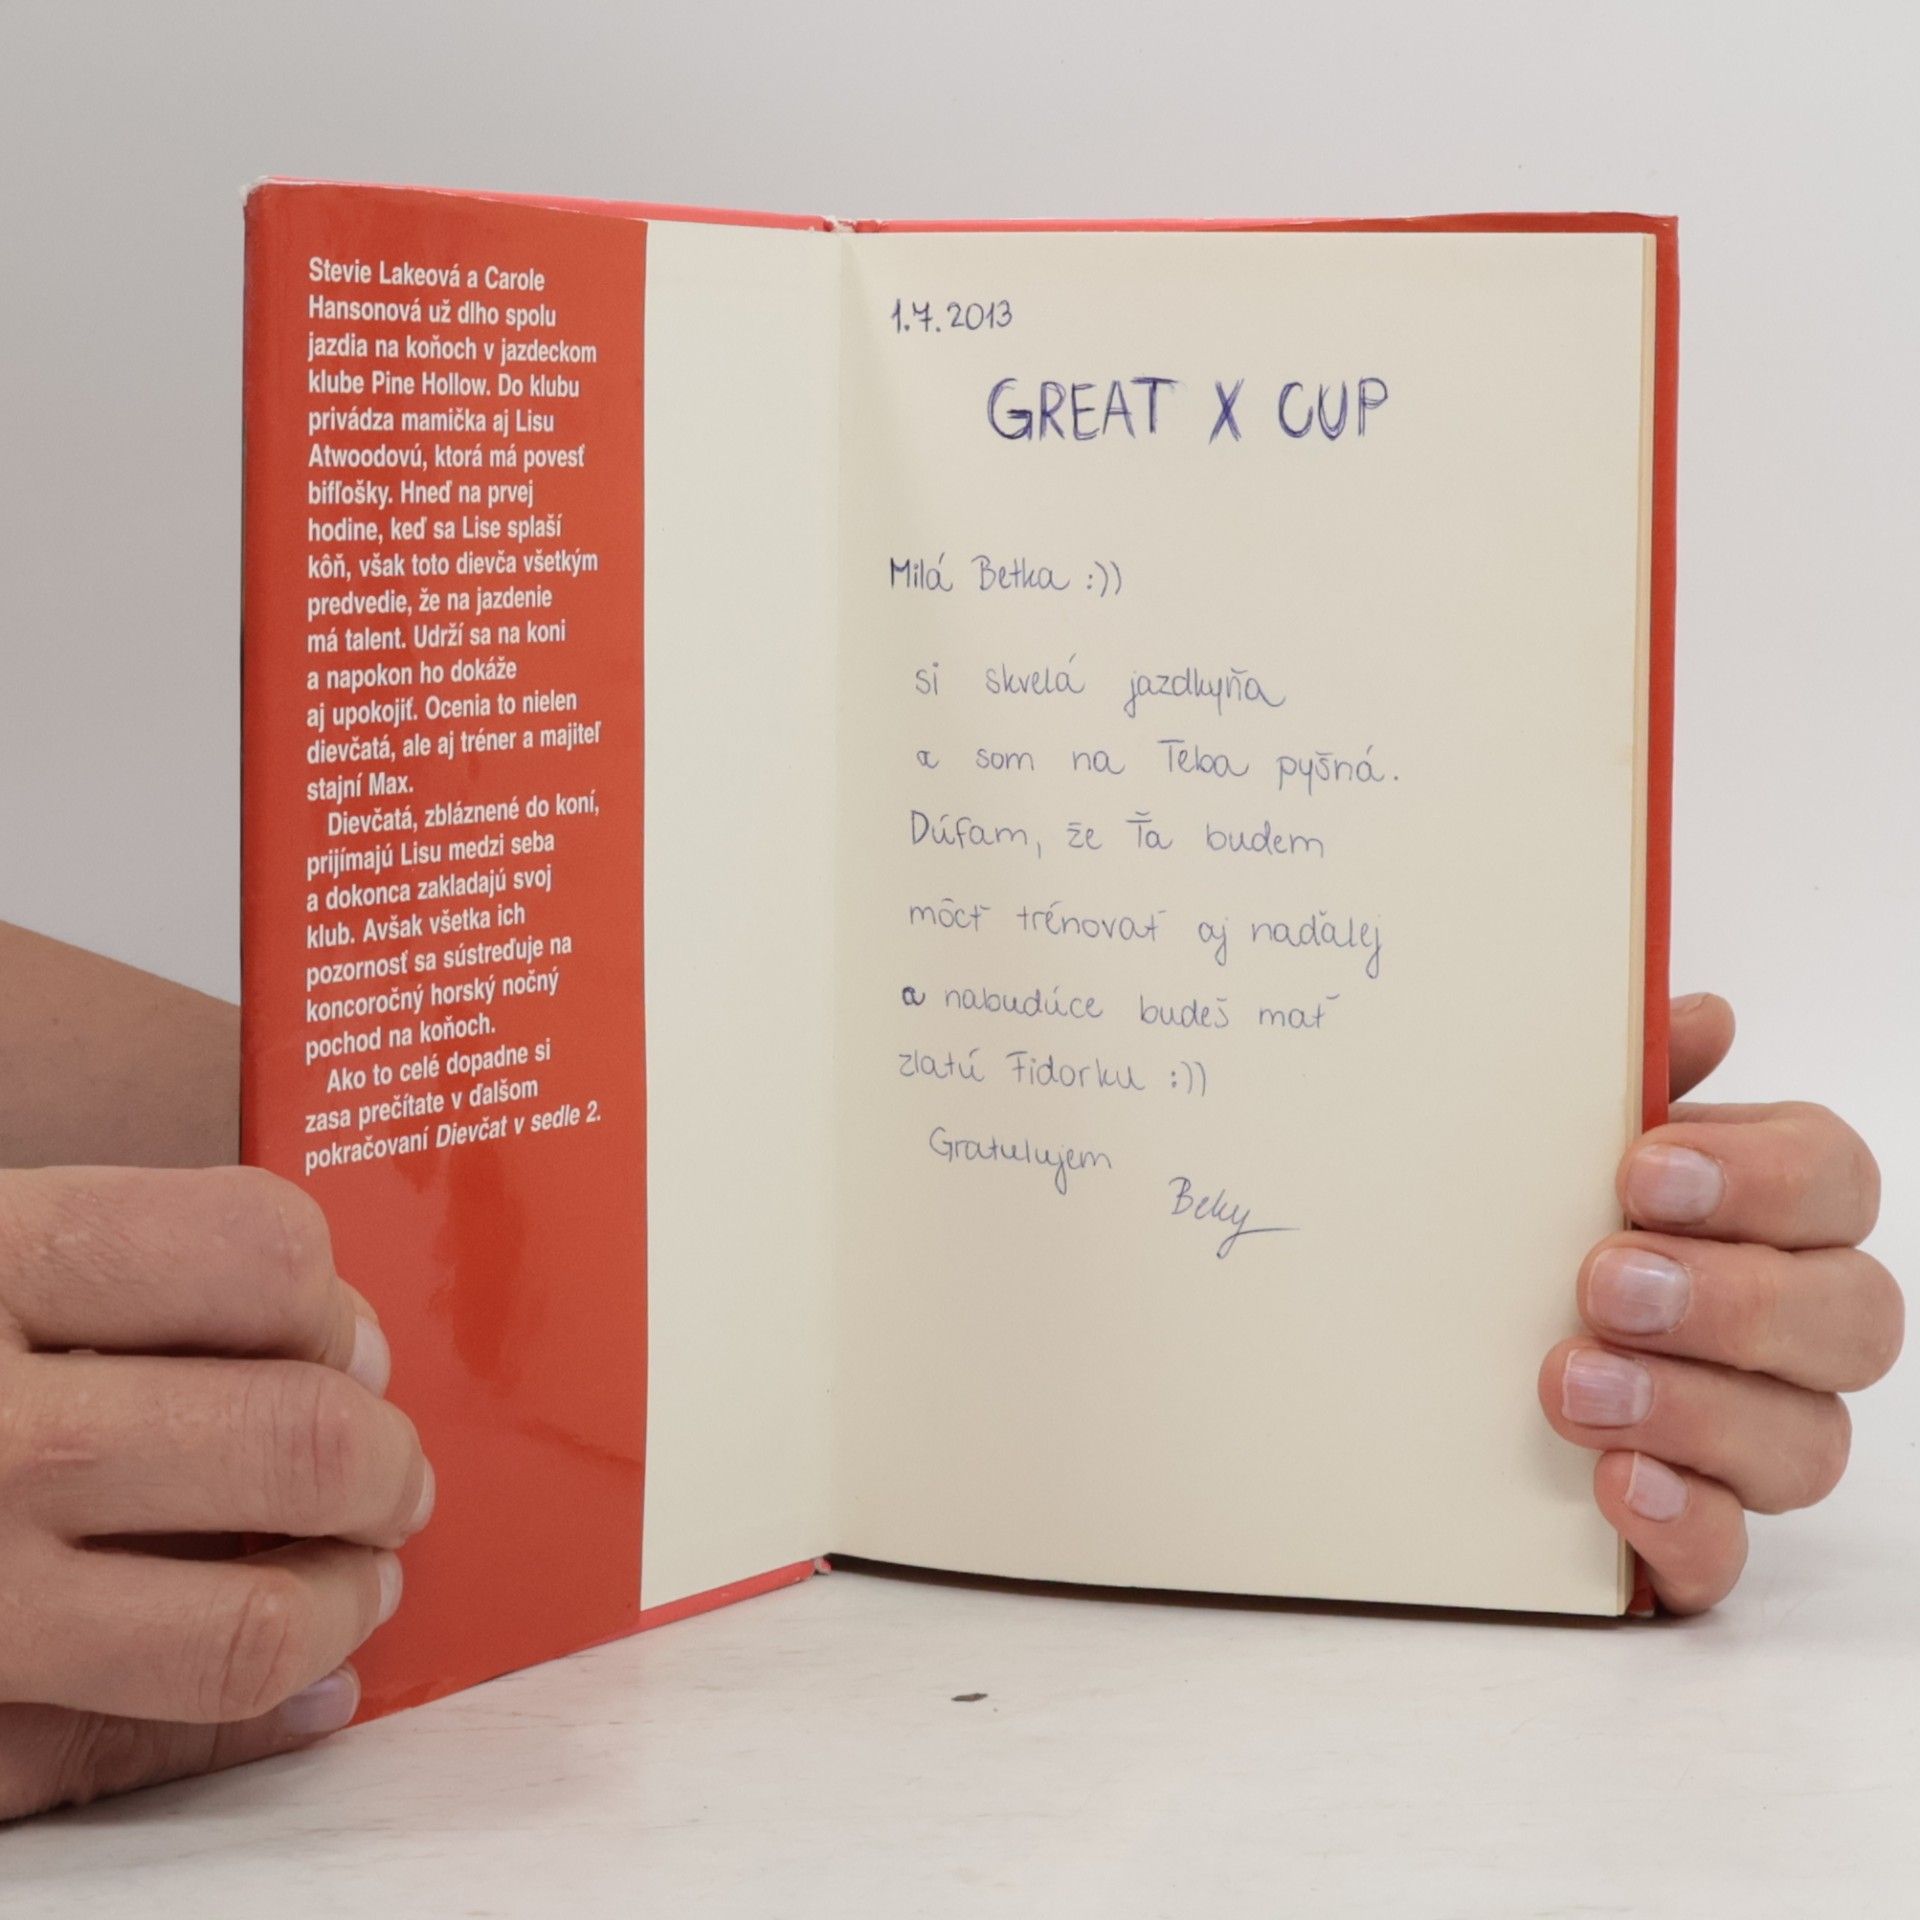 Stevie Lakeová a Carole
Hansonová už dlho spolu
jazdia na koňoch v jazdeckom
klube Pine Hollow. Do klubu
privádza mamička aj Lisu
Atwoodovú, ktorá má povesť
bifľošky. Hneď na prvej
hodine, keď sa Lise splaší
kôň, však toto dievča všetkým
predvedie, že na jazdenie
má talent. Udrží sa na koni
a napokon ho dokáže
aj upokojiť. Ocenia to nielen
dievčatá, ale aj tréner a majiteľ
stajní Max.
Dievčatá, zbláznené do koní,
prijímajú Lisu medzi seba
a dokonca zakladajú svoj
klub. Avšak všetka ich
pozornosť sa sústreďuje na
koncoročný horský nočný
pochod na koňoch.
Ako to celé dopadne si
zasa prečítate v ďalšom
pokračovaní Dievčat v sedle 2.
1.7.2013
GREAT X CUP
Milá Betka :))
si skvelá jazdkyňa
a som na Teba pyšná.
Dúfam, že Ťa budem
môcť trénovať aj naďalej
a nabudúce budeš mať
zlatú Fidorku :))
Gratulujem
Beky